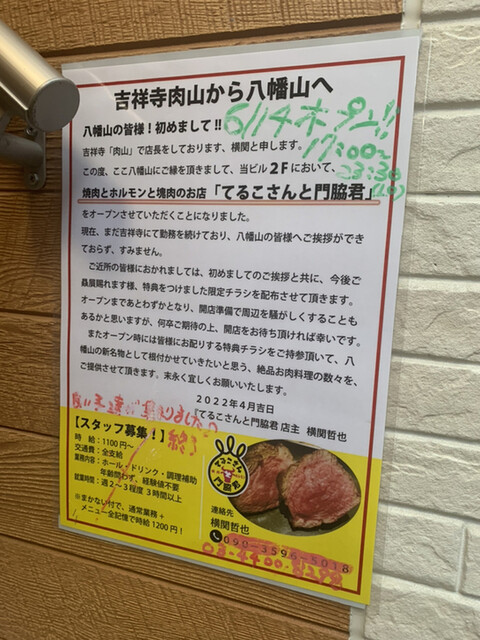 吉祥寺肉山から八幡山へ
八幡山の皆様!初めまして!!
6/14オープン!!
17:00〜
23:30
吉祥寺「肉山」で店長をしております、横関と申します。
この度、ここ八幡山にご縁を頂きまして、当ビル2Fにおいて、
焼肉とホルモンと塊肉のお店「てるこさんと門脇君」
をオープンさせていただくことになりました。
現在、まだ吉祥寺にて勤務を続けており、八幡山の皆様へご挨拶ができ
ておらず、すみません。
ご近所の皆様におかれましては、初めましてのご挨拶と共に、今後ご
贔屓賜れます様、特典をつけました限定チラシを配布させて頂きます。
オープンまであとわずかとなり、開店準備で周辺を騒がしくすることも
あるかと思いますが、何卒ご期待の上、開店をお待ち頂ければ幸いです。
またオープン時には皆様にお配りする特典チラシをご持参頂いて、八
幡山の新名物として根付かせていきたいと思う、絶品お肉料理の数々を、
ご提供させて頂きます。末永く宜しくお願いいたします。
2022年4月吉日
「てるこさんと門脇君 店主 横関哲也
良い子達が集りましたの
終了
【スタッフ募集!】
時 給:1100円〜
交通費:全支給
業務内容:ホール・ドリンク・調理補助
年齢問わず、経験値不要
就業時間:週2〜3程度 3時間以上
※まかない付で、通常業務+
メニュー全記憶で時給1200円!
てるこさん
門脇君
連絡先
横関哲也
090-3596-5018
03-4400-8298